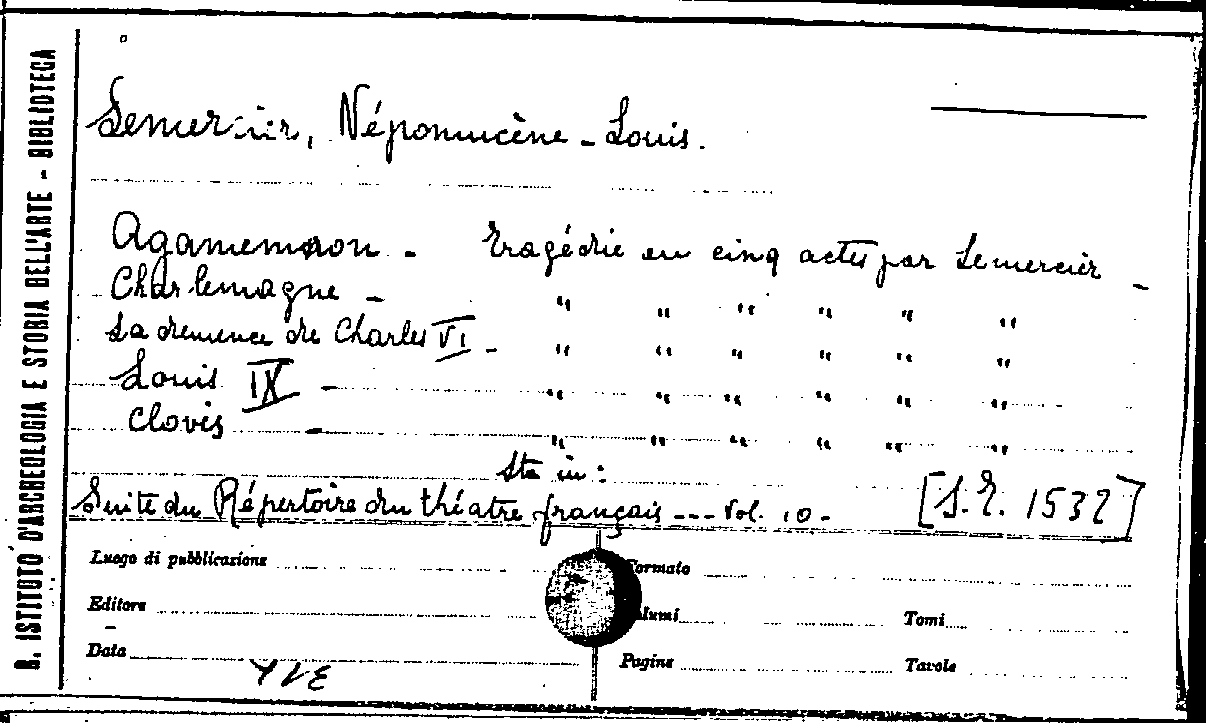 R. ISTITUTO D'ARCHEOLOGIA E STORIA DELL'ARTE - BIBLIOTECA
Lemercier, Népomucène - Louis.
Agamemnon - tragédie en cinq actes par Lemercier -
Charlemagne - " " " " " "
La demence de Charles VI - " " " " " "
Louis IX - " " " " " "
Clovis - " " " " " "
Sta in:
Suite du Répertoire du théatre français --- Vol. 10 - [S.E. 1532]
Luogo di pubblicazione Formato
Editore Tomi
Data Pagine Tavole